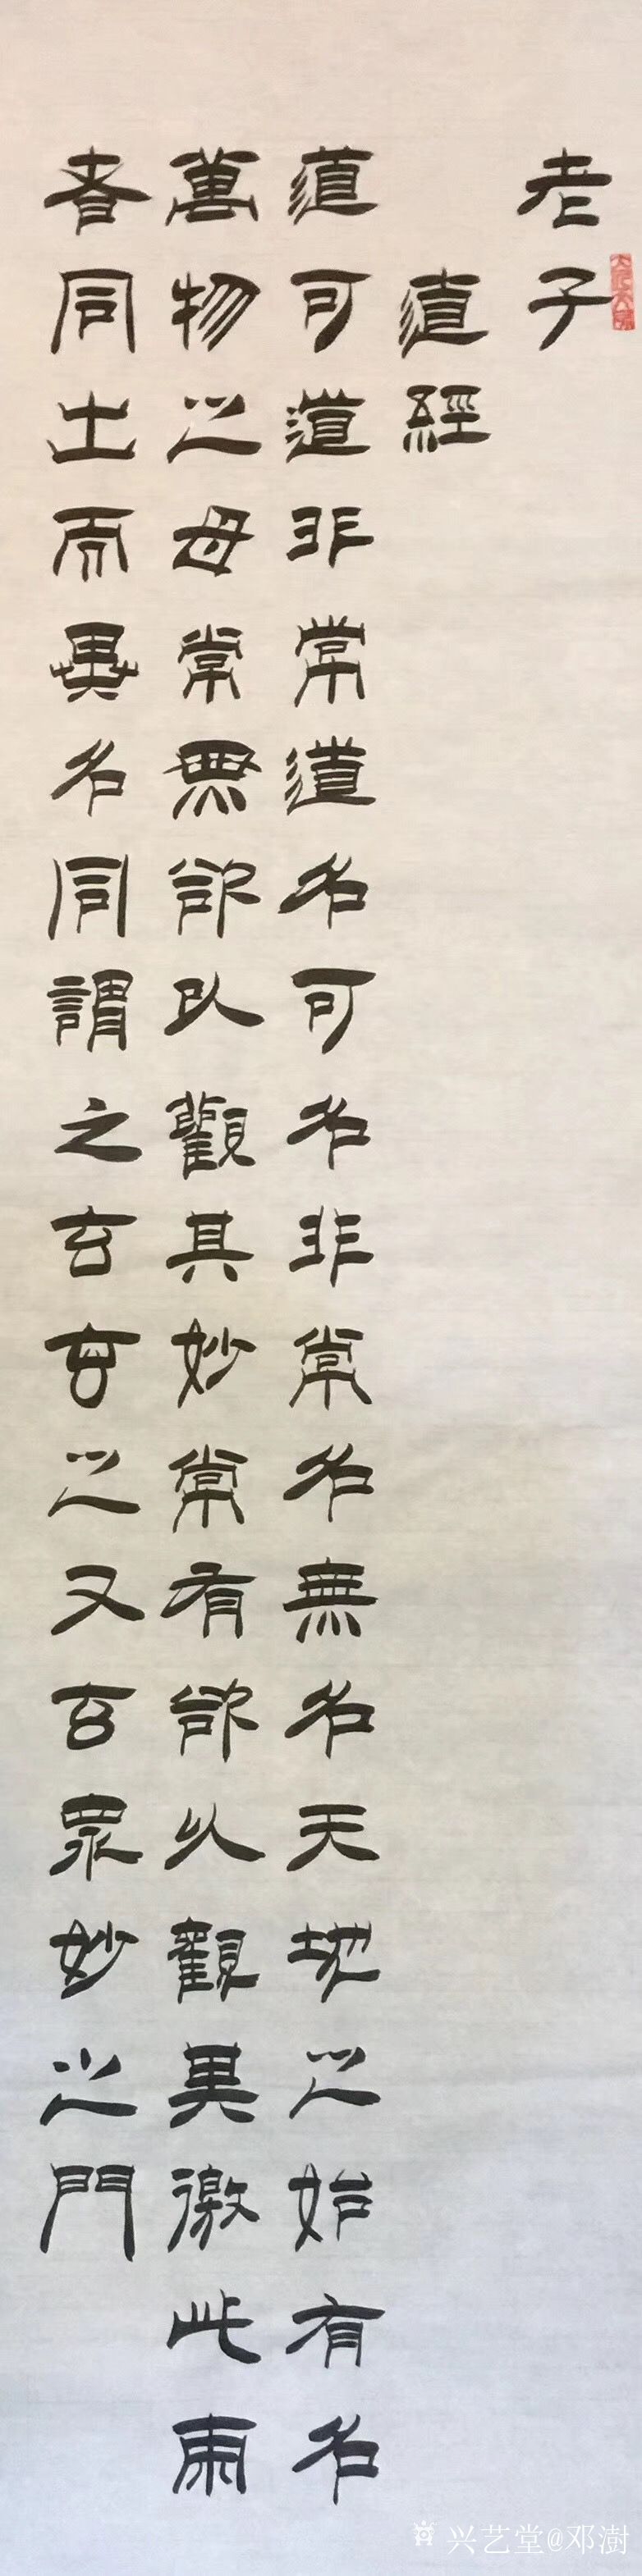 老子
道經
道可道非常道名可名非常名無名天地之始有名
萬物之母常無欲以觀其妙常有欲以觀其徼此兩
者同出而異名同謂之玄玄之又玄眾妙之門
兴艺堂@邓澍